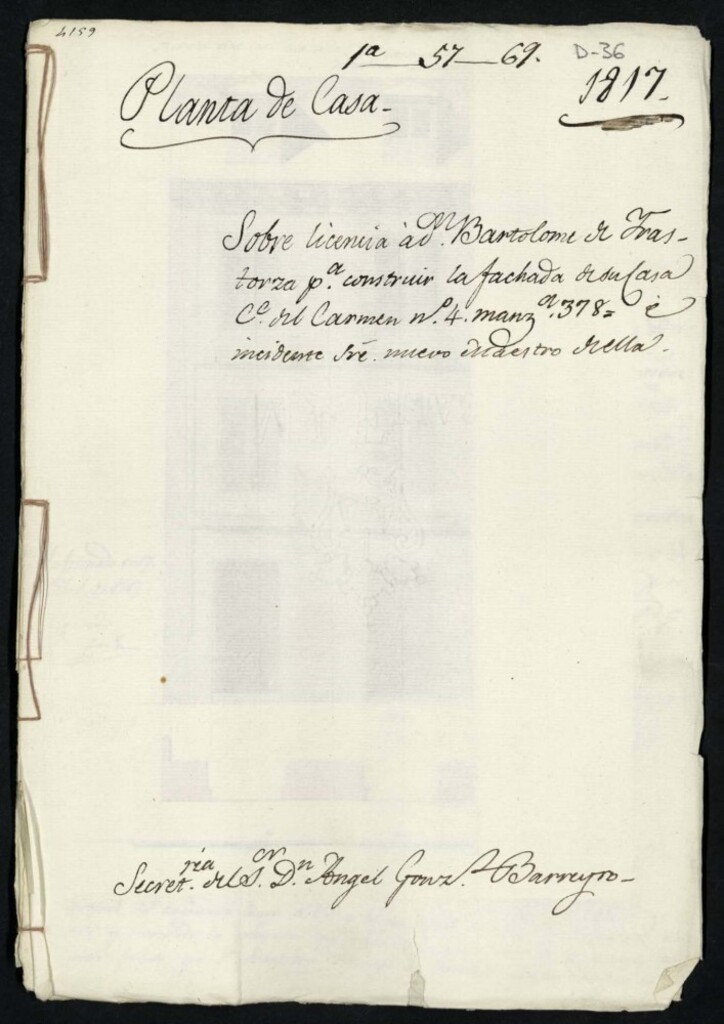 4159
1ª — 57 — 69.
D-36
1817.
Planta de Casa.
Sobre licencia à dⁿ. Bartolome de Tras-
torza pª. construir la fachada de su Casa
Cᵉ. del Carmen nº. 4. manzⁿ. 378 = è
incidente sʳᵉ. nuevo Maestro de ella.
Secretʳⁱᵃ. del Sᵒʳ. Dⁿ Angel Gonzᶻ. Barreyro-